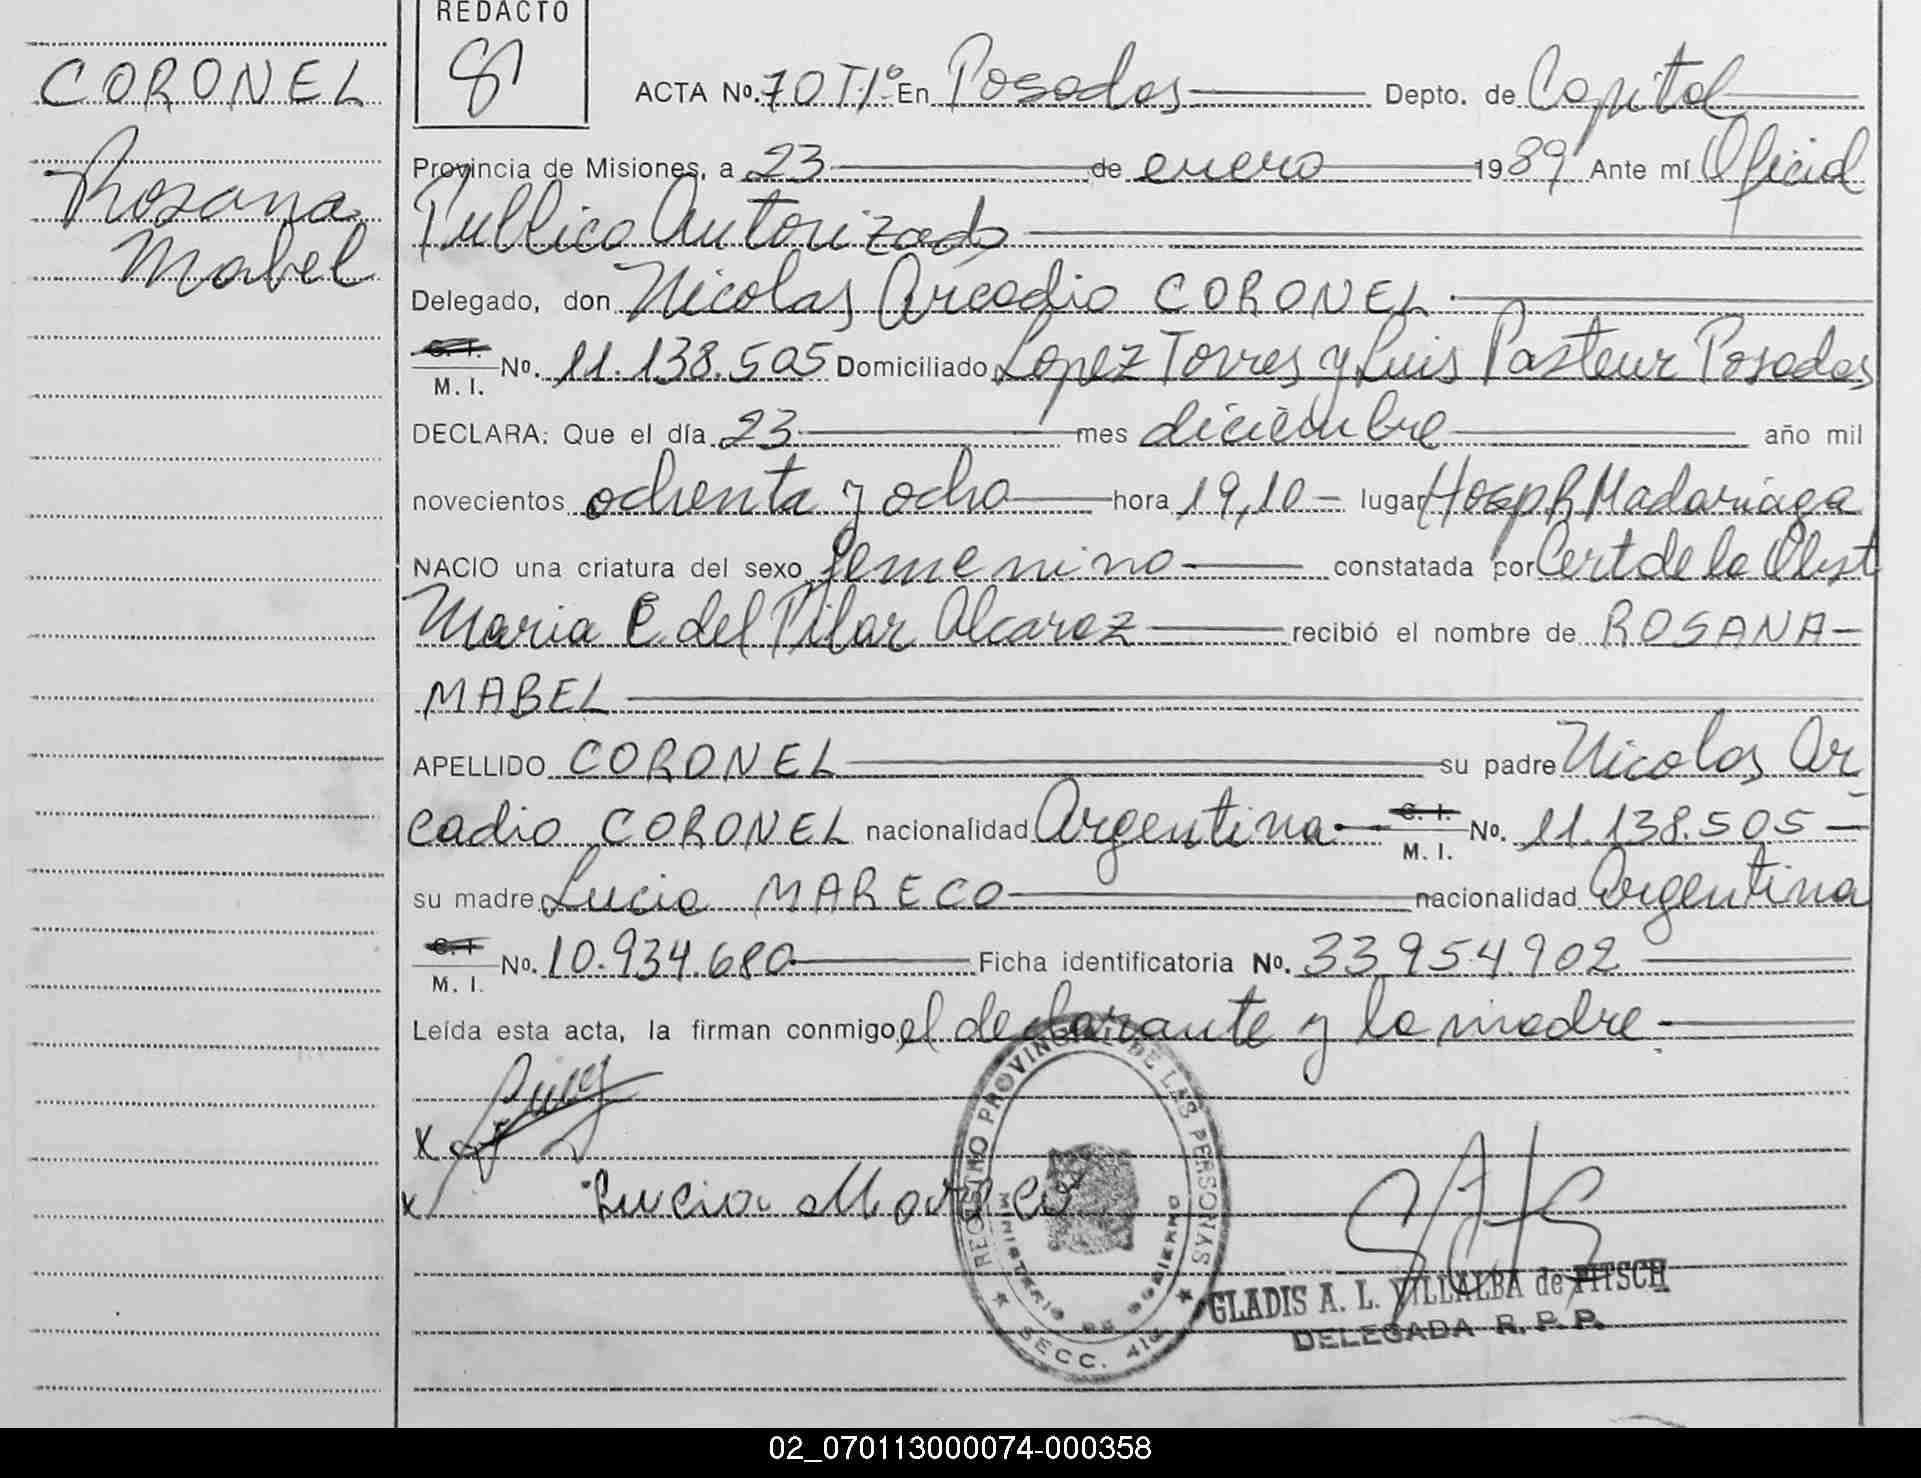 CORONEL
Rosana
Mabel
REDACTO
ACTA Nº. 70 T1º En Posadas Depto. de Capital
Provincia de Misiones, a 23 de enero 1989 Ante mí Oficial
Publico Autorizado
Delegado, don Nicolas Arcadio CORONEL
C. I. Nº. 11.138.505 Domiciliado Lopez Torres y Luis Pasteur Posadas
M. I.
DECLARA: Que el día 23 mes diciembre año mil
novecientos ochenta y ocho hora 19,10 lugar Hosp R. Madariaga
NACIO una criatura del sexo femenino constatada por Cert de la Obst
Maria E. del Pilar Alcaraz recibió el nombre de ROSANA
MABEL
APELLIDO CORONEL su padre Nicolas Ar
cadio CORONEL nacionalidad Argentina C. I. Nº. 11.138.505
M. I.
su madre Lucia MARECO nacionalidad Argentina
C. I Nº. 10.934.680 Ficha identificatoria Nº. 33.954.902
M. I.
Leída esta acta, la firman conmigo el declarante y la madre
x
x Lucia Mareco
REGISTRO PROVINCIAL DE LAS PERSONAS
MINISTERIO DE GOBIERNO
SECC. 4ta
GLADIS A. L. VILLALBA de FITSCH
DELEGADA R. P. P.
02_070113000074-000358